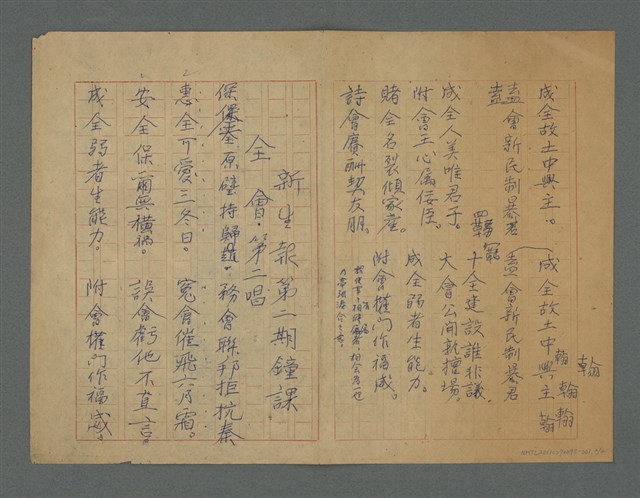 成全故土中興主。
盍會新民制暴君
成全人美唯君子。
附會王心屬佞臣。
賭全名裂傾家產。
詩會賡酬契友朋。
翰
翰
翰翰
成全故土中興主
盍會新民制暴君
十全建設誰非議
大會公開新擅場。
成全弱者生能力。
附會權門作福威。
新生報第二期鐘課
全會。第二唱
保全秦原璧持歸趙。務會聯邦拒抗秦
惠全可愛三冬日。冤會催飛六月霜。
安全保爾無橫禍。誤會虧他不直言。
成全弱者生能力。附會權門作福威。